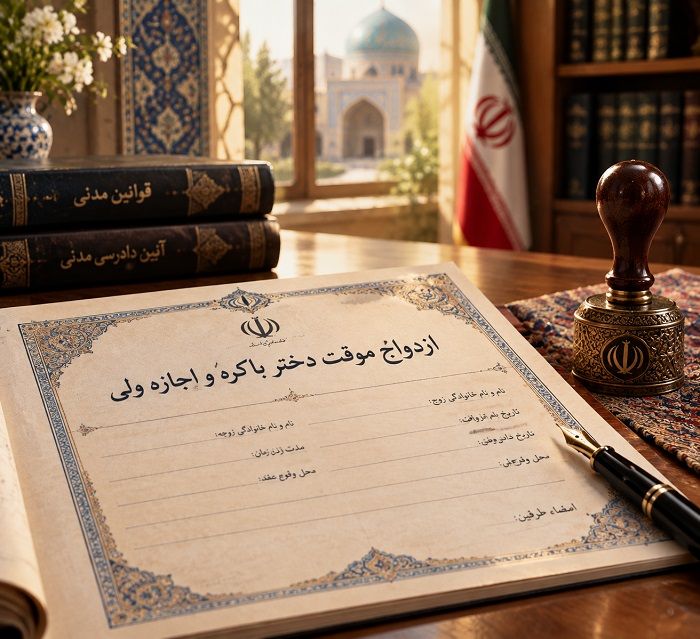 قوانین مدنی
آئین دادرسی مدنی
ازدواج موقت دختر باکره و اجازه ولی
نام و نام خانوادگی زوج:
نام و نام خانوادگی زوجه:
تاریخ
مدت
زمان:
تاریخ
محل وقوع
محل وقوع عقد:
امضاء طرفین: